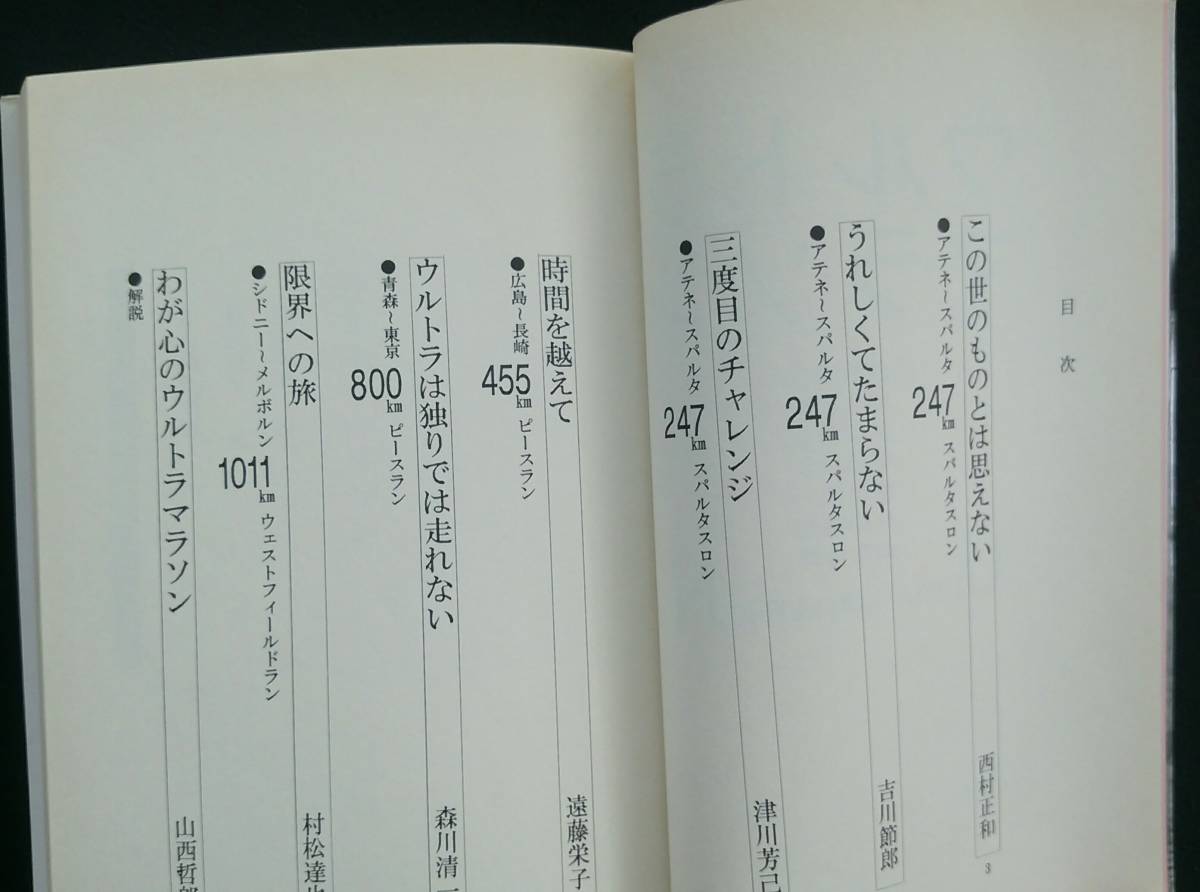 目次
この世のものとは思えない 西村正和 3
●アテネ～スパルタ 247km スパルタスロン
うれしくてたまらない 吉川節郎
●アテネ～スパルタ 247km スパルタスロン
三度目のチャレンジ 津川芳己
●アテネ～スパルタ 247km スパルタスロン
時間を越えて 遠藤栄子
●広島～長崎 455km ピースラン
ウルトラは独りでは走れない 森川清一
●青森～東京 800km ピースラン
限界への旅 村松達也
●シドニー～メルボルン 1011km ウェストフィールドラン
わが心のウルトラマラソン 山西哲郎
●解説